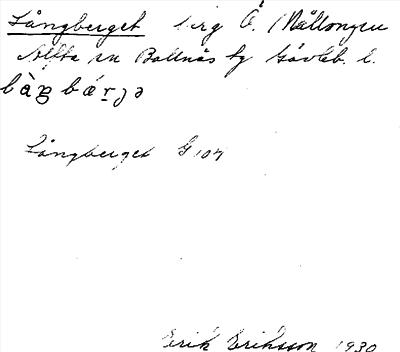 Långberget berg Ö. Mållongen
Alfta sn Bollnäs tg Gävleb. l.
Långberget G 104
Erik Eriksson 1930